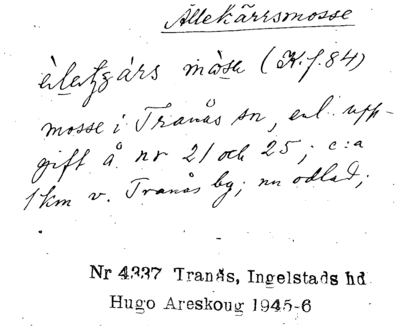 Ällekärrsmosse
mosse (K. f. 84)
mosse i Tranås sn, enl. upp-
gift å nr 21 och 25; c:a
1 km v. Tranås by; nu odlad;
Nr 4337 Tranås, Ingelstads hd
Hugo Areskoug 1945-6